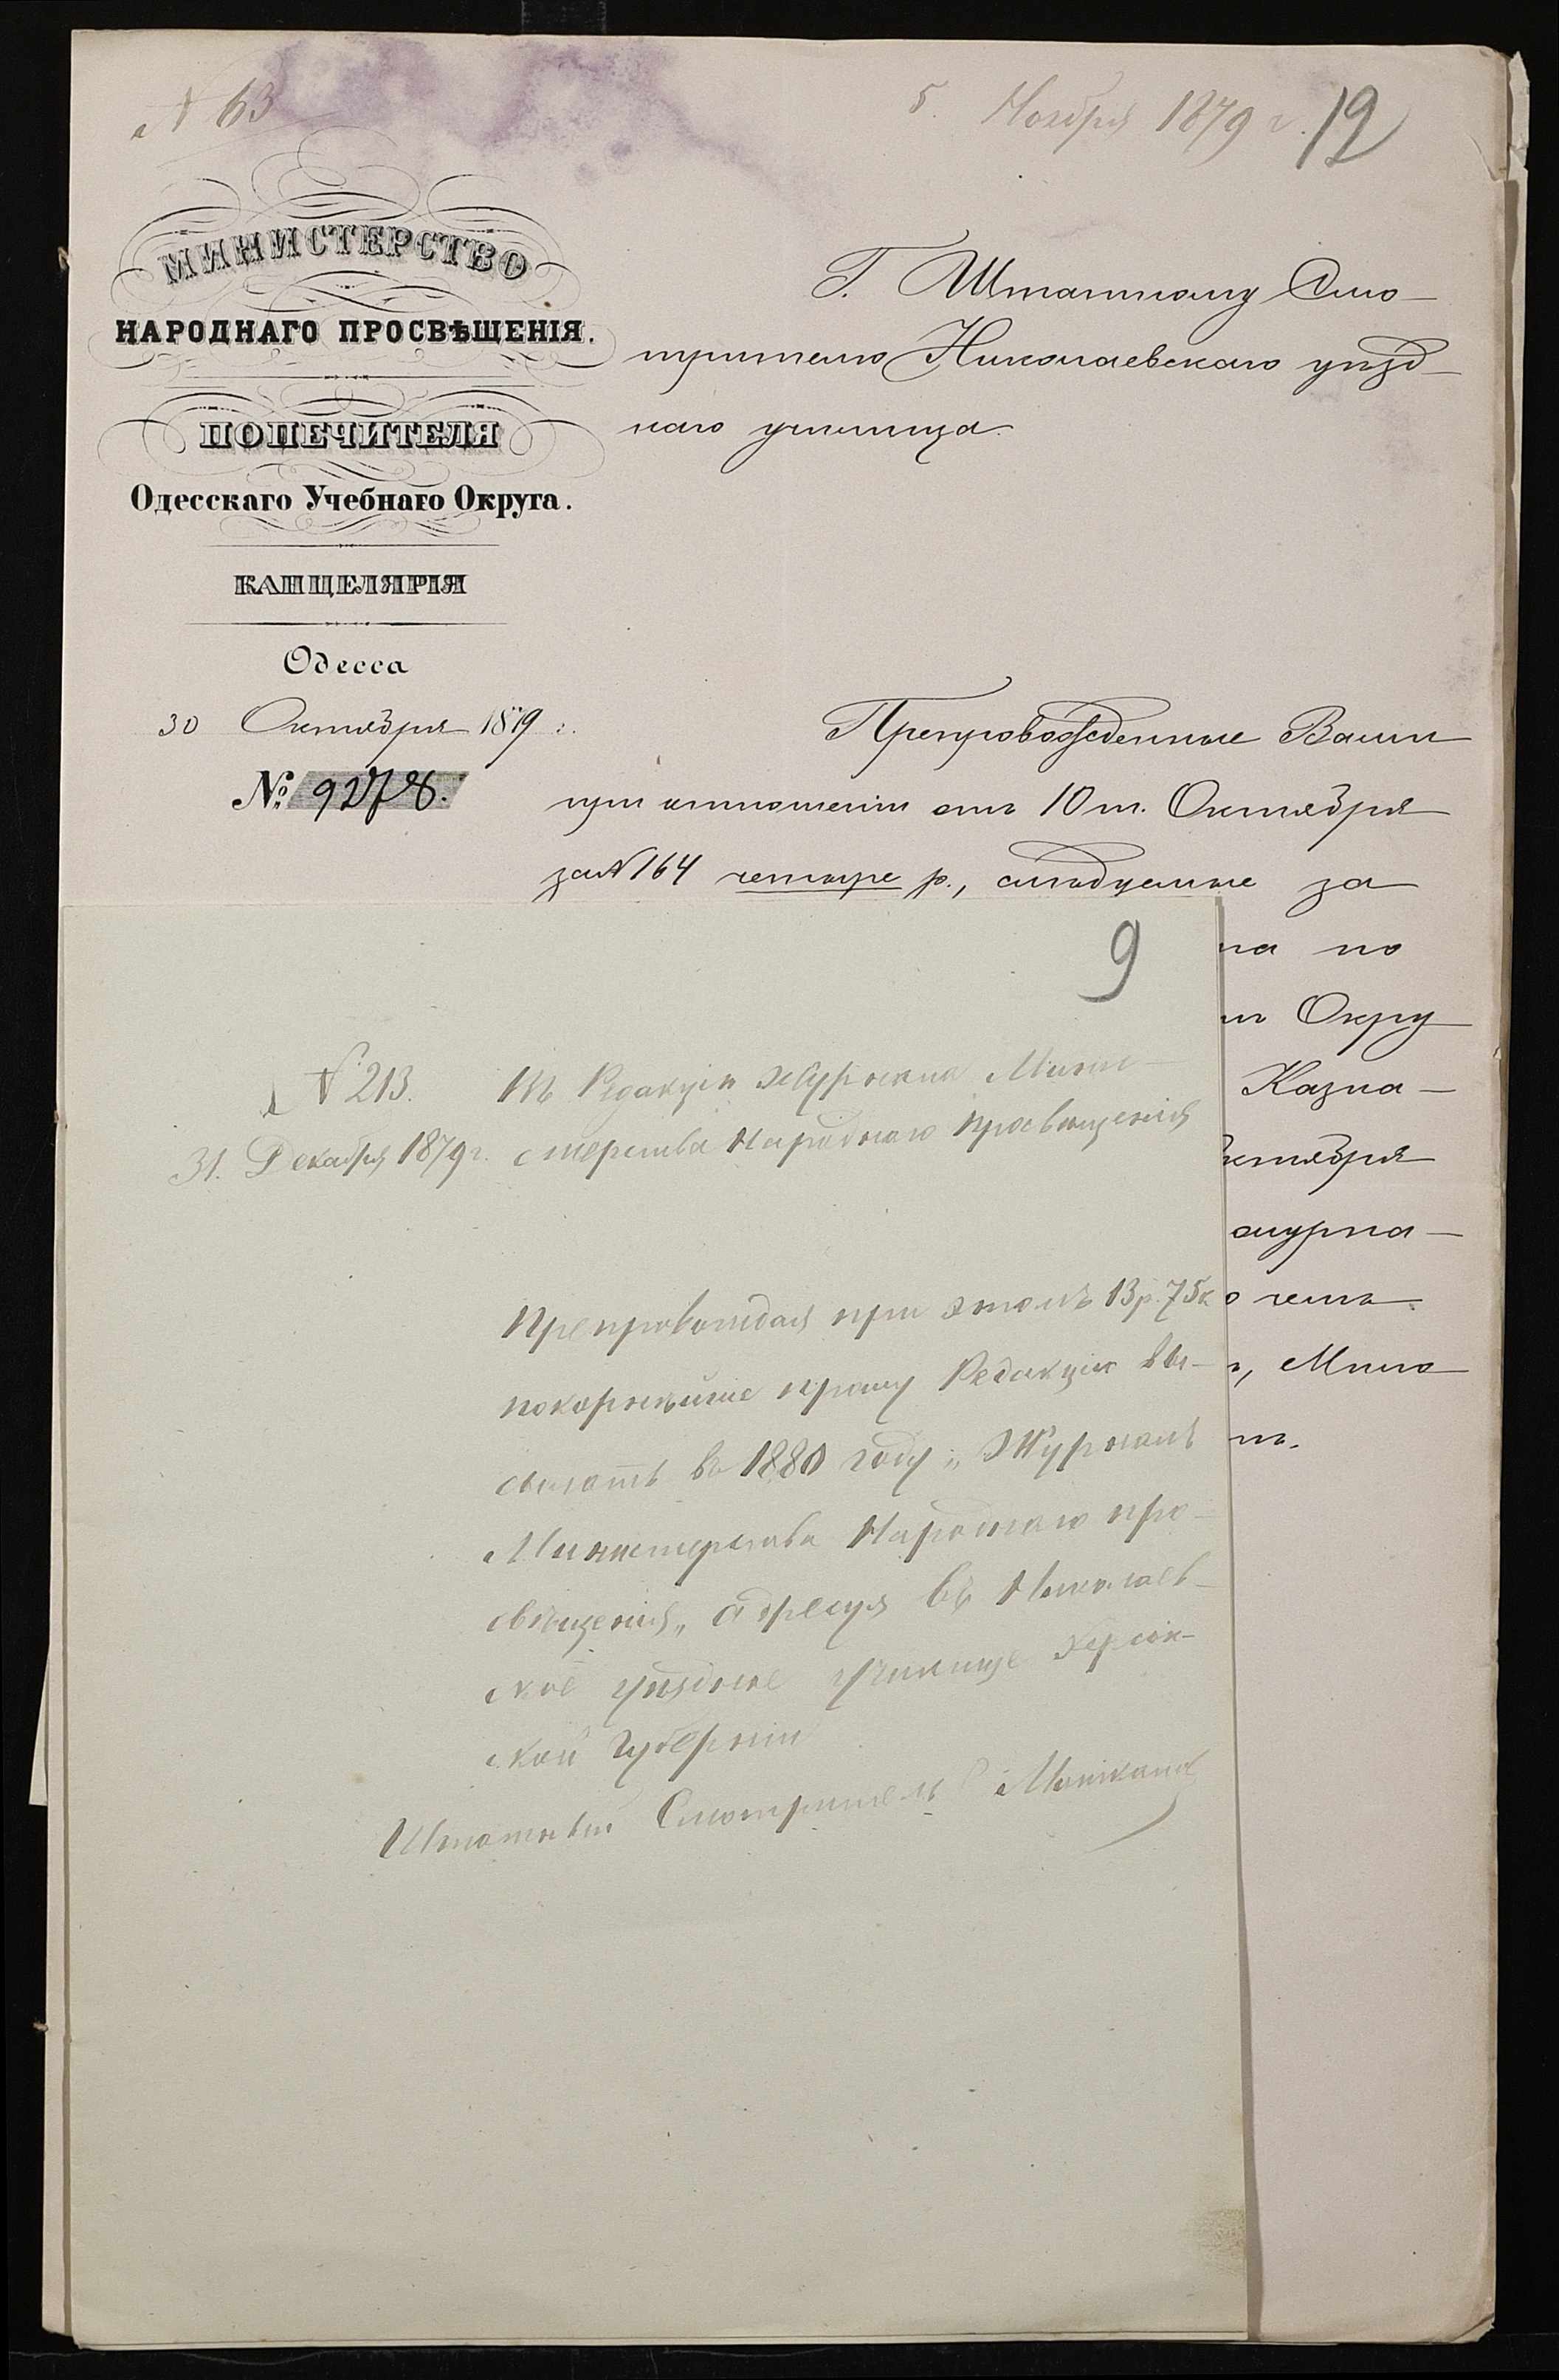 № 63
5. Ноября 1879 г. 12
МИНИСТЕРСТВО
НАРОДНАГО ПРОСВѢЩЕНІЯ.
ПОПЕЧИТЕЛЯ
Одесскаго Учебнаго Округа.
КАНЦЕЛЯРІЯ
Одесса
30 Октября 1879 г.
№ 9278.
Г. Штатному Смо-
трителю Николаевскаго уѣзд-
наго училища.
Препровожденные Вами
при отношеніи отъ 10 т. Октября
за № 164 четыре р., слѣдуемые за
на по
Окру
Казна-
ктября
журна-
о чемъ
, Мило
тъ.
9
№ 213.
31. Декабря 1879 г.
Въ Редакцію Журнала Мини-
стерства Народнаго Просвѣщенія
Препровождая при этомъ 13 р. 75 к
покорнѣйше прошу Редакцію вы-
сылать въ 1880 году „Журналъ
Министерства Народнаго про-
свѣщенія„ адресуя въ Николаев-
ское уѣздное училище Херсон-
ской губерніи
Штатный Смотритель